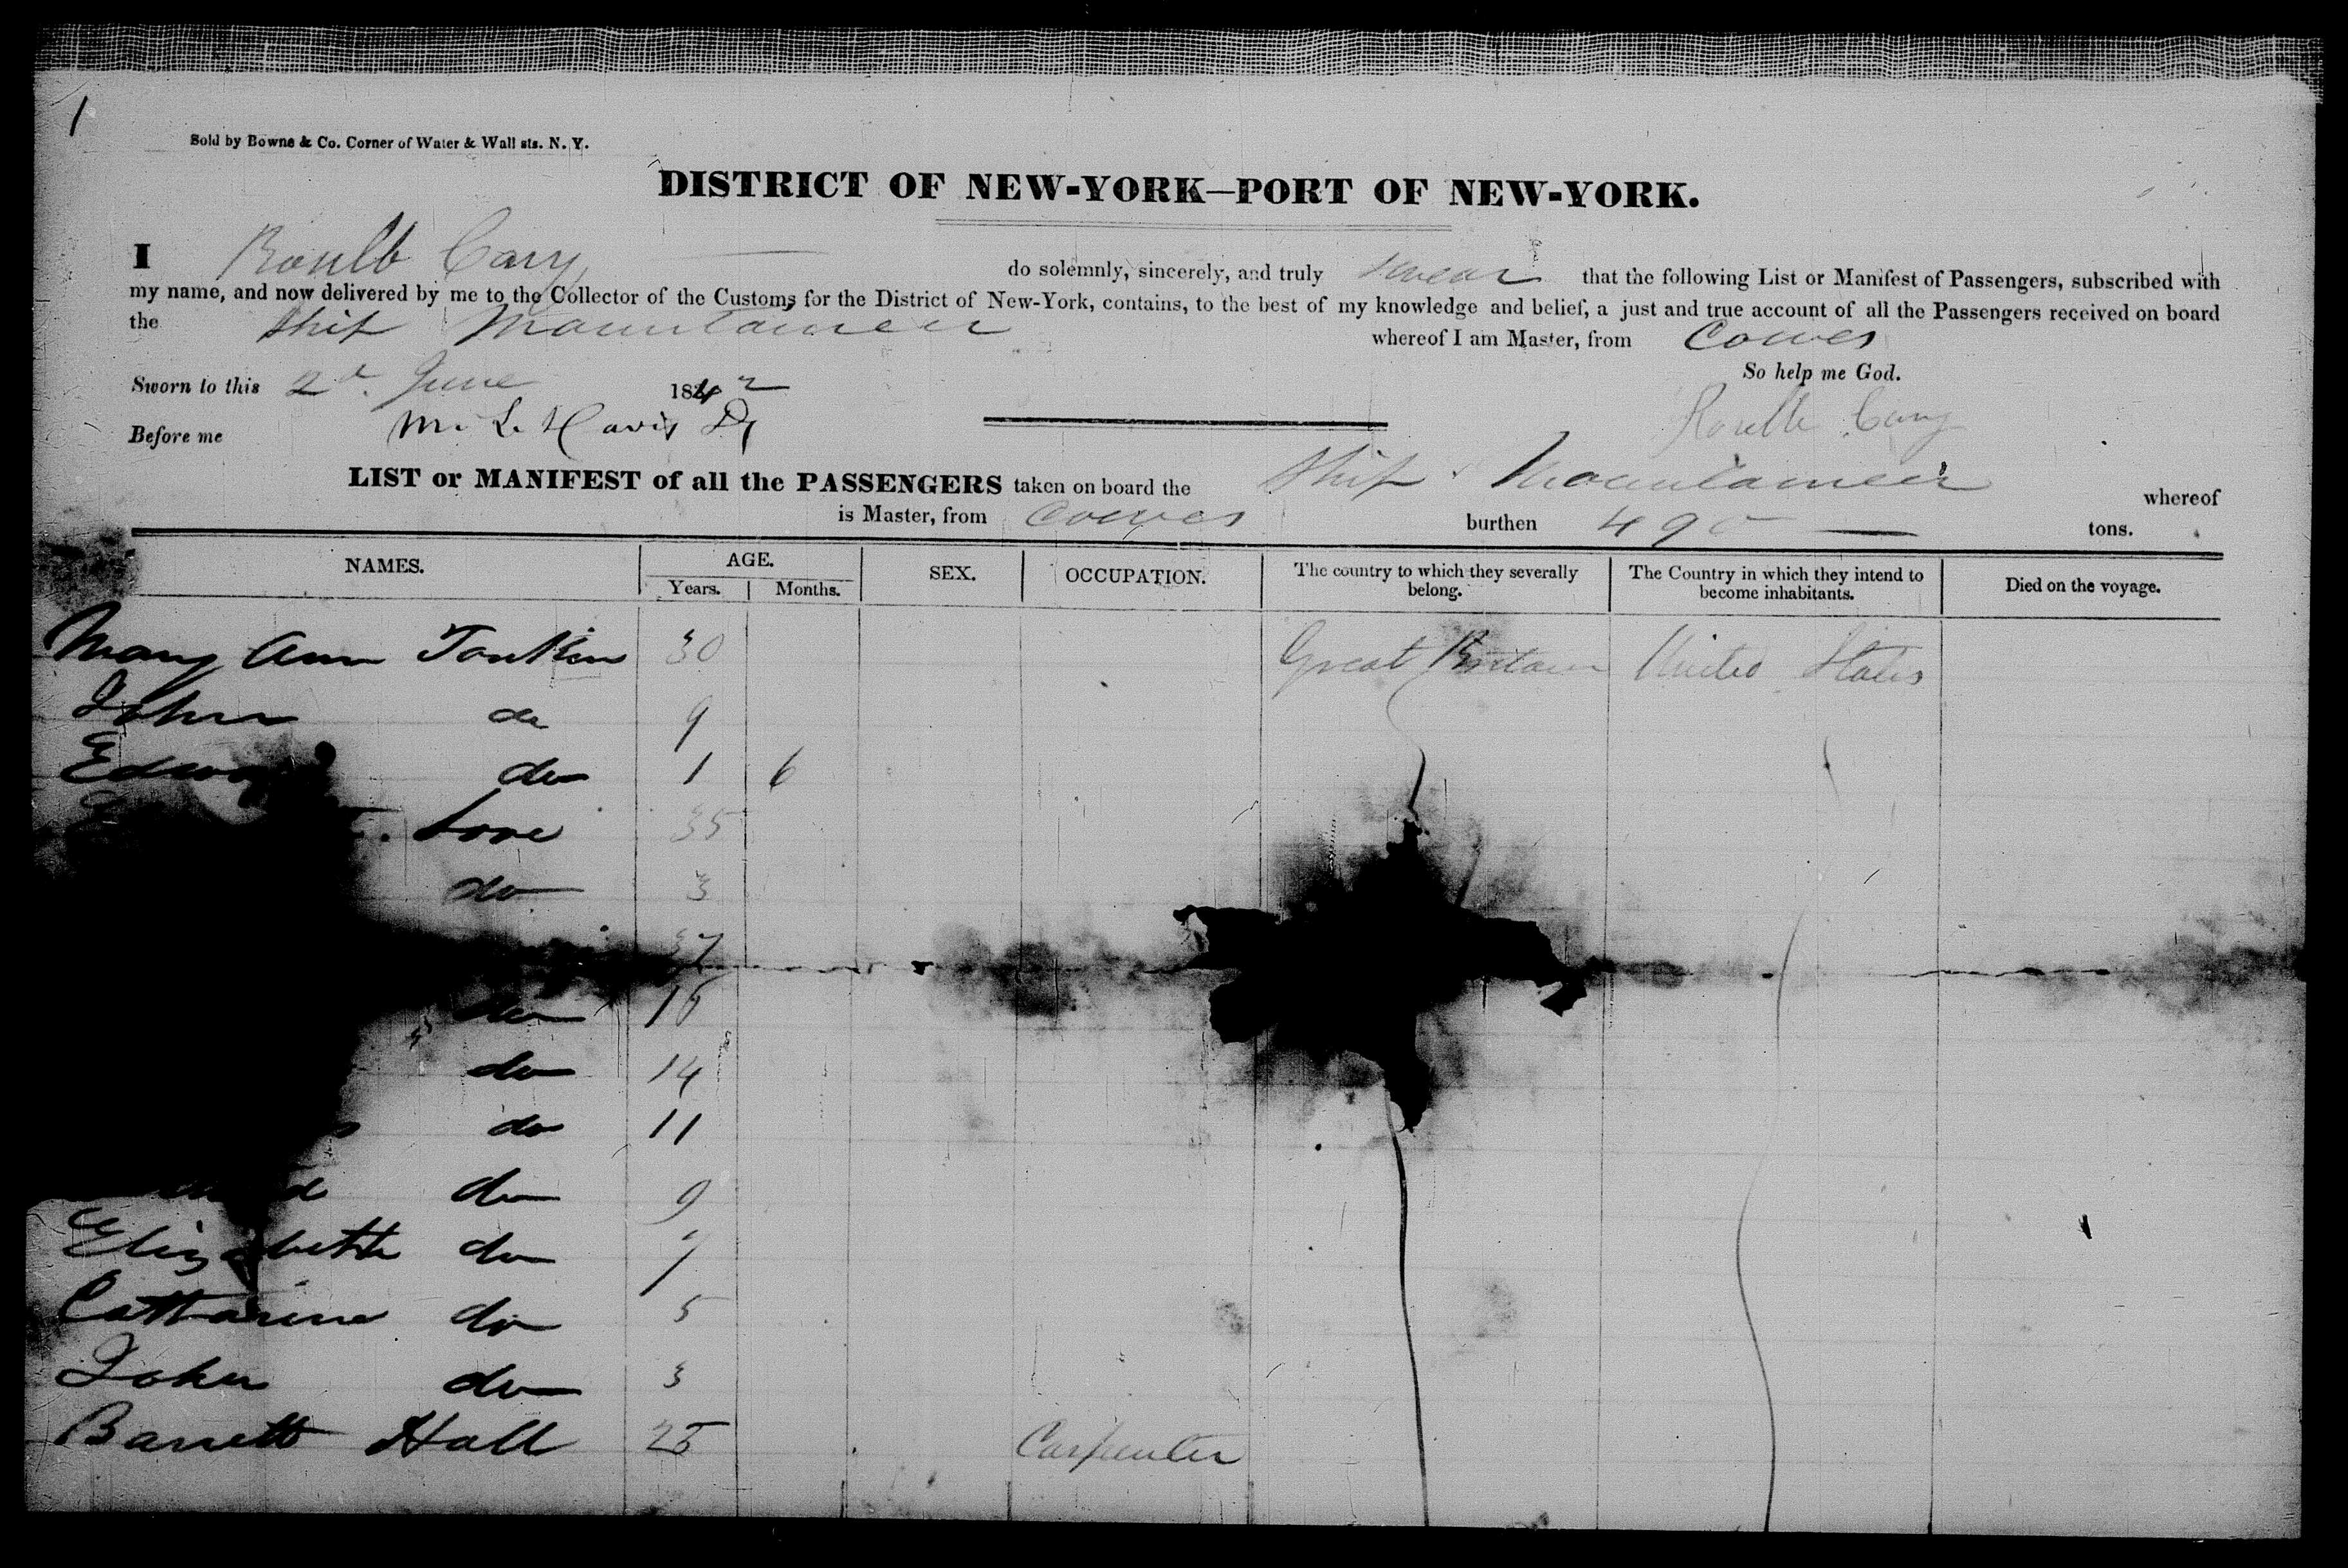 1
Sold by Bowne & Co. Corner of Water & Wall sts. N. Y.
DISTRICT OF NEW-YORK—PORT OF NEW-YORK.
I Cary do solemnly, sincerely, and truly swear that the following List or Manifest of Passengers, subscribed with
my name, and now delivered by me to the Collector of the Customs for the District of New-York, contains, to the best of my knowledge and belief, a just and true account of all the Passengers received on board
the Ship Mountaineer whereof I am Master, from Cowes
So help me God.
Sworn to this 2d. June 1842
Cary
Before me
LIST or MANIFEST of all the PASSENGERS taken on board the Ship Mountaineer whereof
is Master, from Cowes burthen tons.
NAMES. AGE. SEX. OCCUPATION. The country to which they severally belong. The Country in which they intend to become inhabitants. Died on the voyage.
Years. Months.
Mary Ann Tonkin 30 Great Britain United States
John do 9
do 1 6
35
do 3
37
do
do 14
do 11
do 9
Elizabeth do 7
Catharine do 5
John do 3
Barrett Hall 25 Carpenter